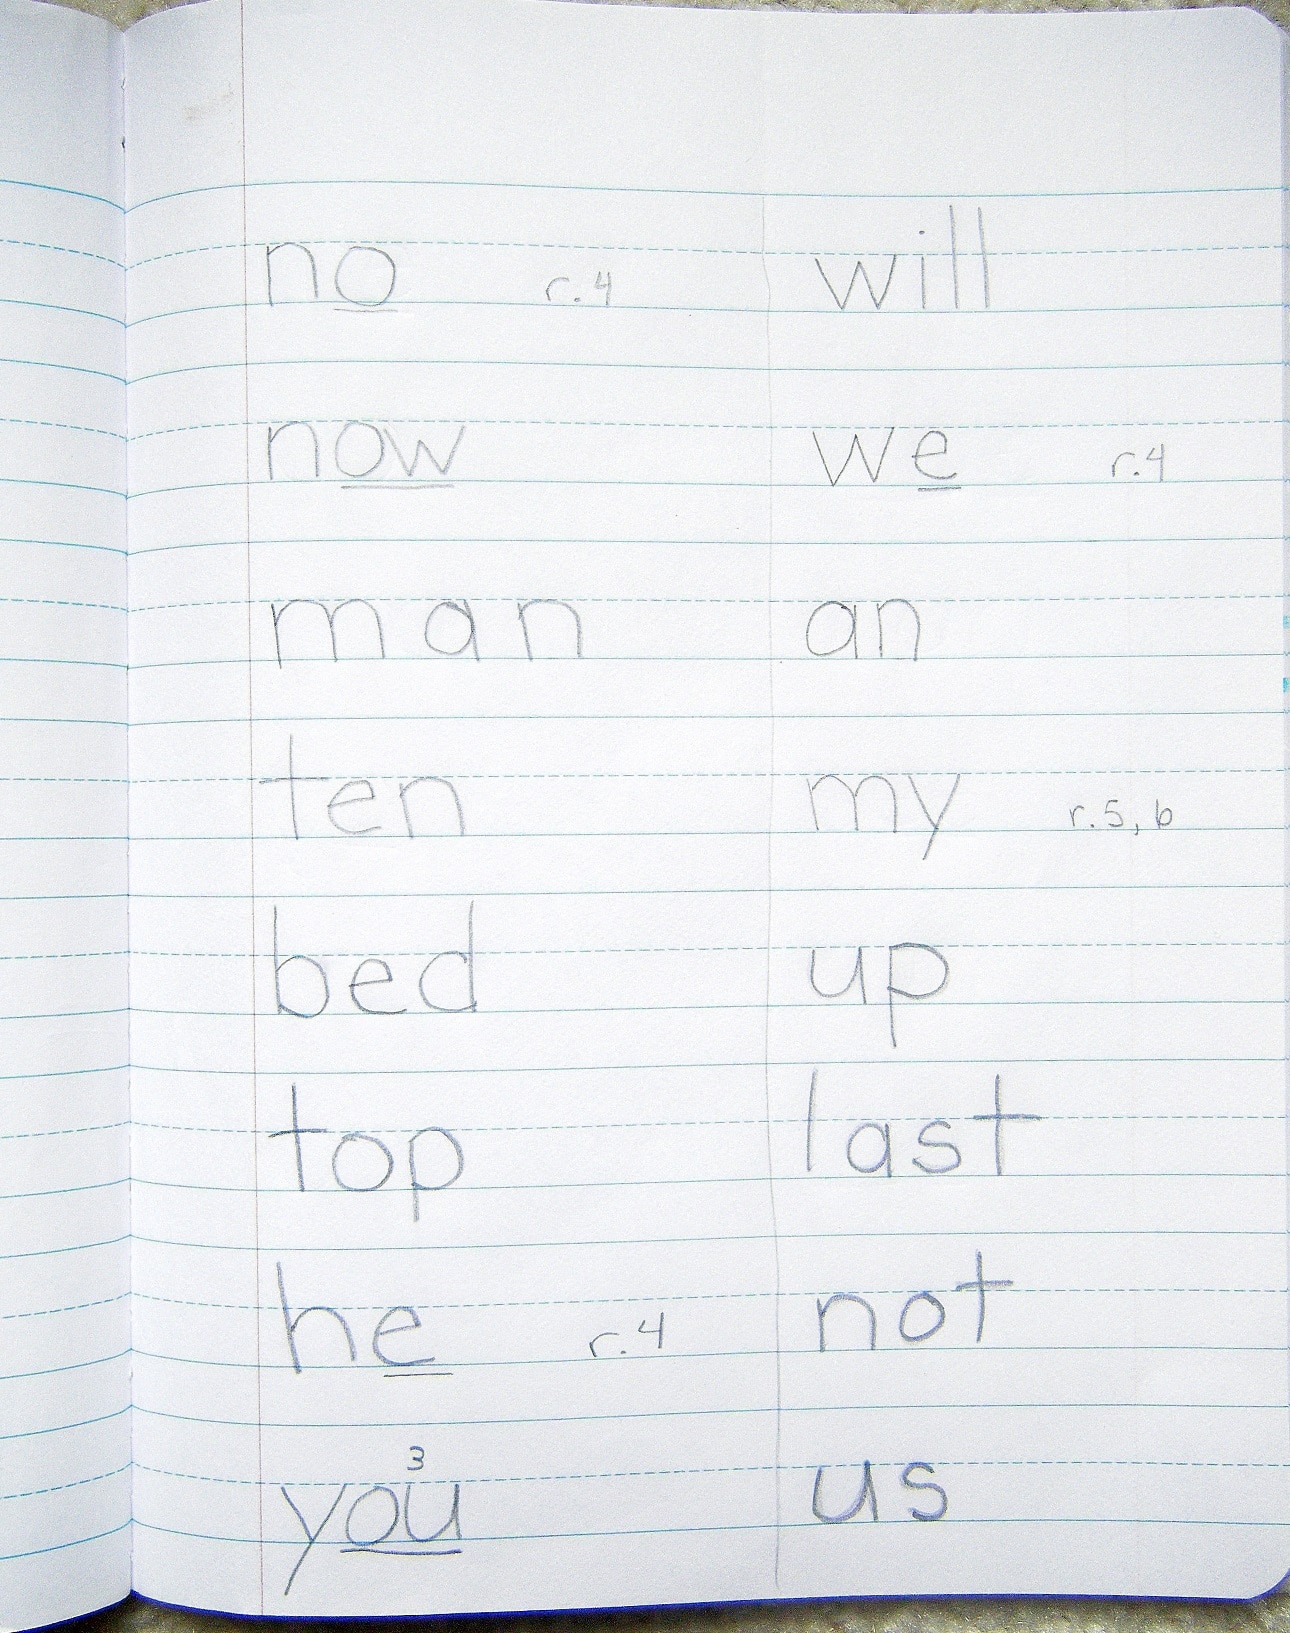 no r.4 will
now we r.4
man an
ten my r.5, 6
bed up
top last
he r.4 not
3
you us